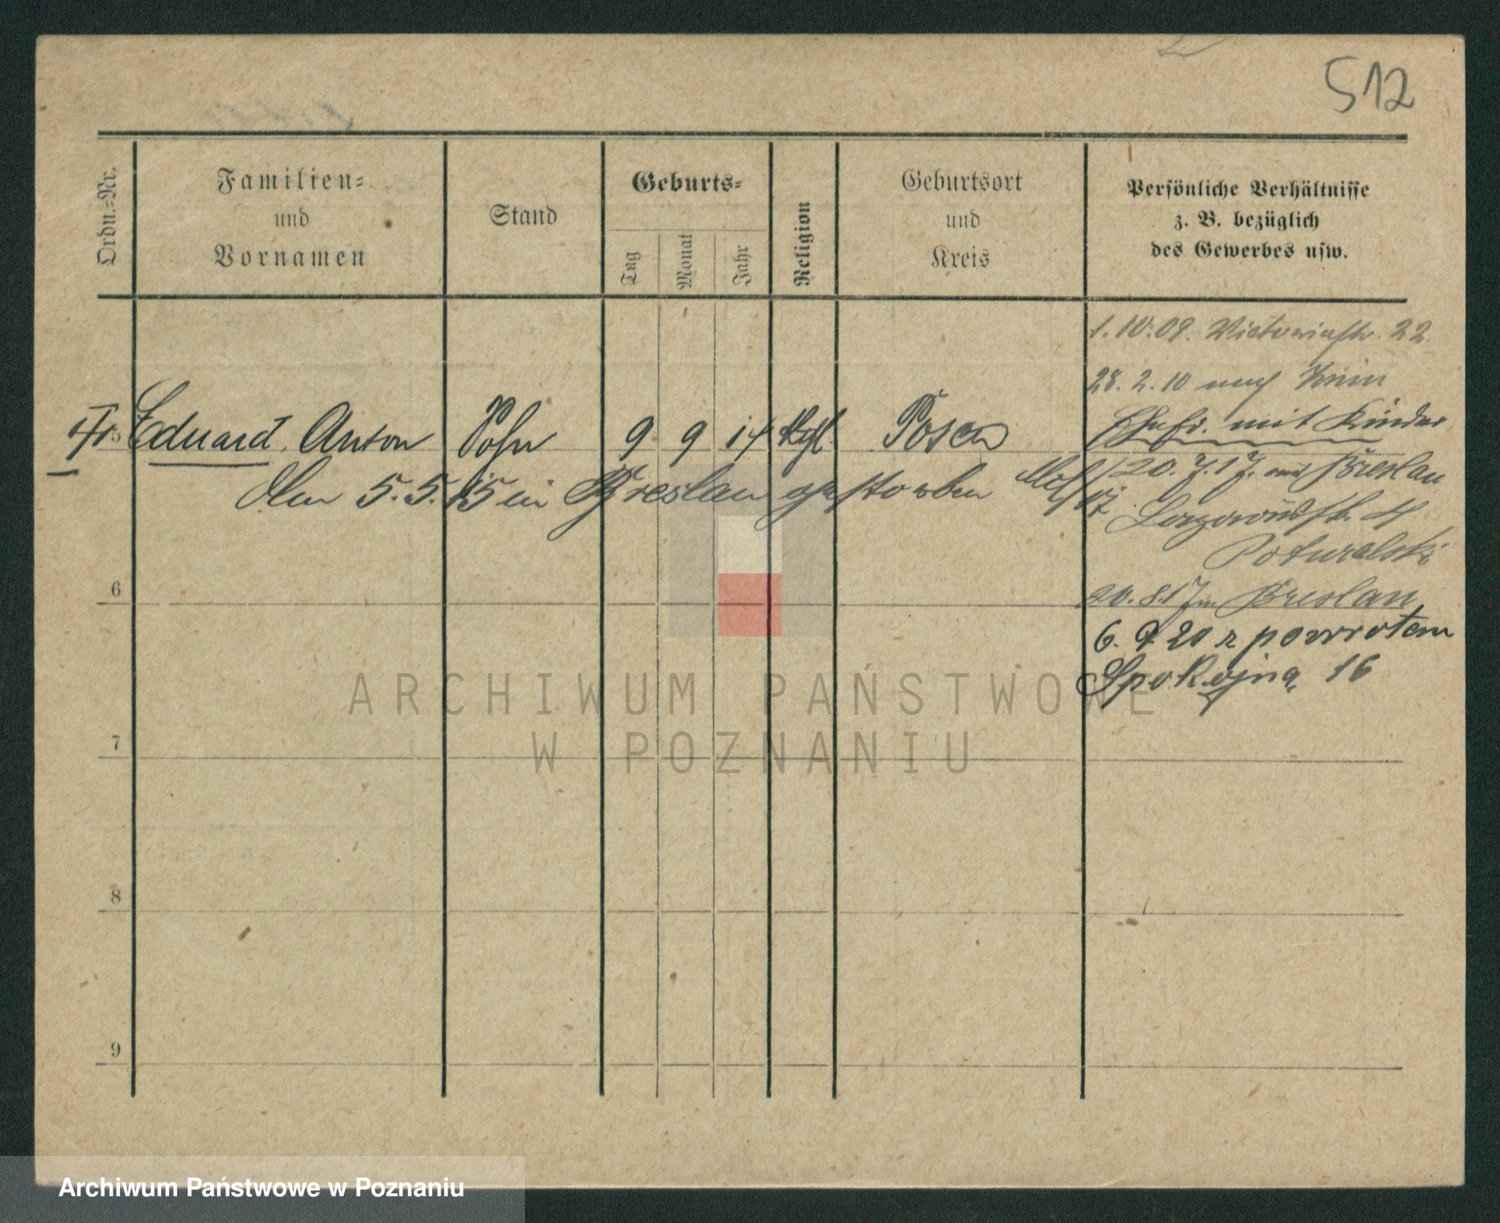 512
Ordn.-Nr.
Familien-
und
Vornamen
Stand
Geburts-
Tag
Monat
Jahr
Religion
Geburtsort
und
Kreis
Persönliche Verhältnisse
z. B. bezüglich
des Gewerbes usw.
1.10.08. Victoriastr. 22
28.2.10 nach
Ehefr. mit Kinder
5 Eduard. Anton Sohn 9 9 14 ktgl. Posen
20.7.17. aus Breslau
Am 5.5.15 in Breslau gestorben
4
Poturalski
6
20.8.17 Breslau
6. 9. 20 z powrotem
Spokojna 16
7
8
9
ARCHIWUM PAŃSTWOWE
W POZNANIU
Archiwum Państwowe w Poznaniu